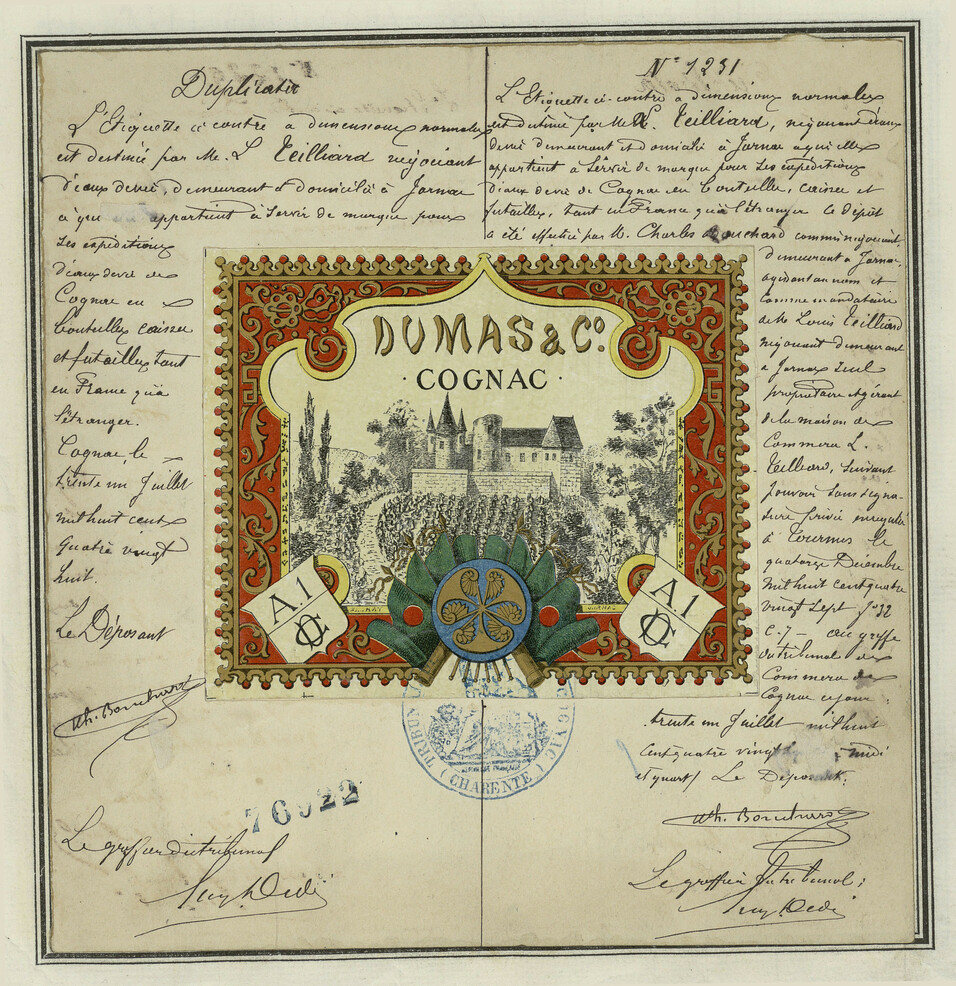 Duplicata
L'Etiquette ci contre a dimensions normales
est destinée par Mr. L Teilliard négociant
d'eaux devie, demeurant & domicilié à Jarnac
à appartient à Servir de marque pour
Les expéditions
d'eaux devie de
Cognac en
bouteilles caisses
et futailles tant
en France qu'à
l'étranger.
Cognac, le
trente un Juillet
mil huit cent
quatre vingt
huit.
Le Déposant
Ch. Bouchard
Le greffier du tribunal
76922
N° 1231
L'Etiquette ci-contre a dimensions normales
est destinée par Mr L. Teilliard, négociant d'eaux
devie demeurant et domicilié à Jarnac
appartient à Servir de marque pour Les expéditions
d'eaux devie de Cognac en bouteilles, caisses et
futailles, tant en France qu'à l'étranger Ce dépôt
a été effectué par M. Charles Bouchard commis négociant,
demeurant a Jarnac,
agissant au nom et
comme mandataire
de Mr Louis Teilliard
négociant demeurant
a Jarnac seul
propriétaire & gérant
de la maison de
Commerce L.
Teilliard, suivant
pouvoir sous signa-
ture privée enregistré
à le
quatorze Décembre
mil huit cent quatre
vingt sept fo 32
C. 7 - au greffe
du tribunal de
Commerce de
Cognac ce jour
trente un Juillet mil huit
cent quatre vingt midi
et quart Le Déposant.
Ch. Bouchard
Le greffier du tribunal;
DUMAS & Co.
· COGNAC ·
A.1
A1
TRIBUN
(CHARENTE)